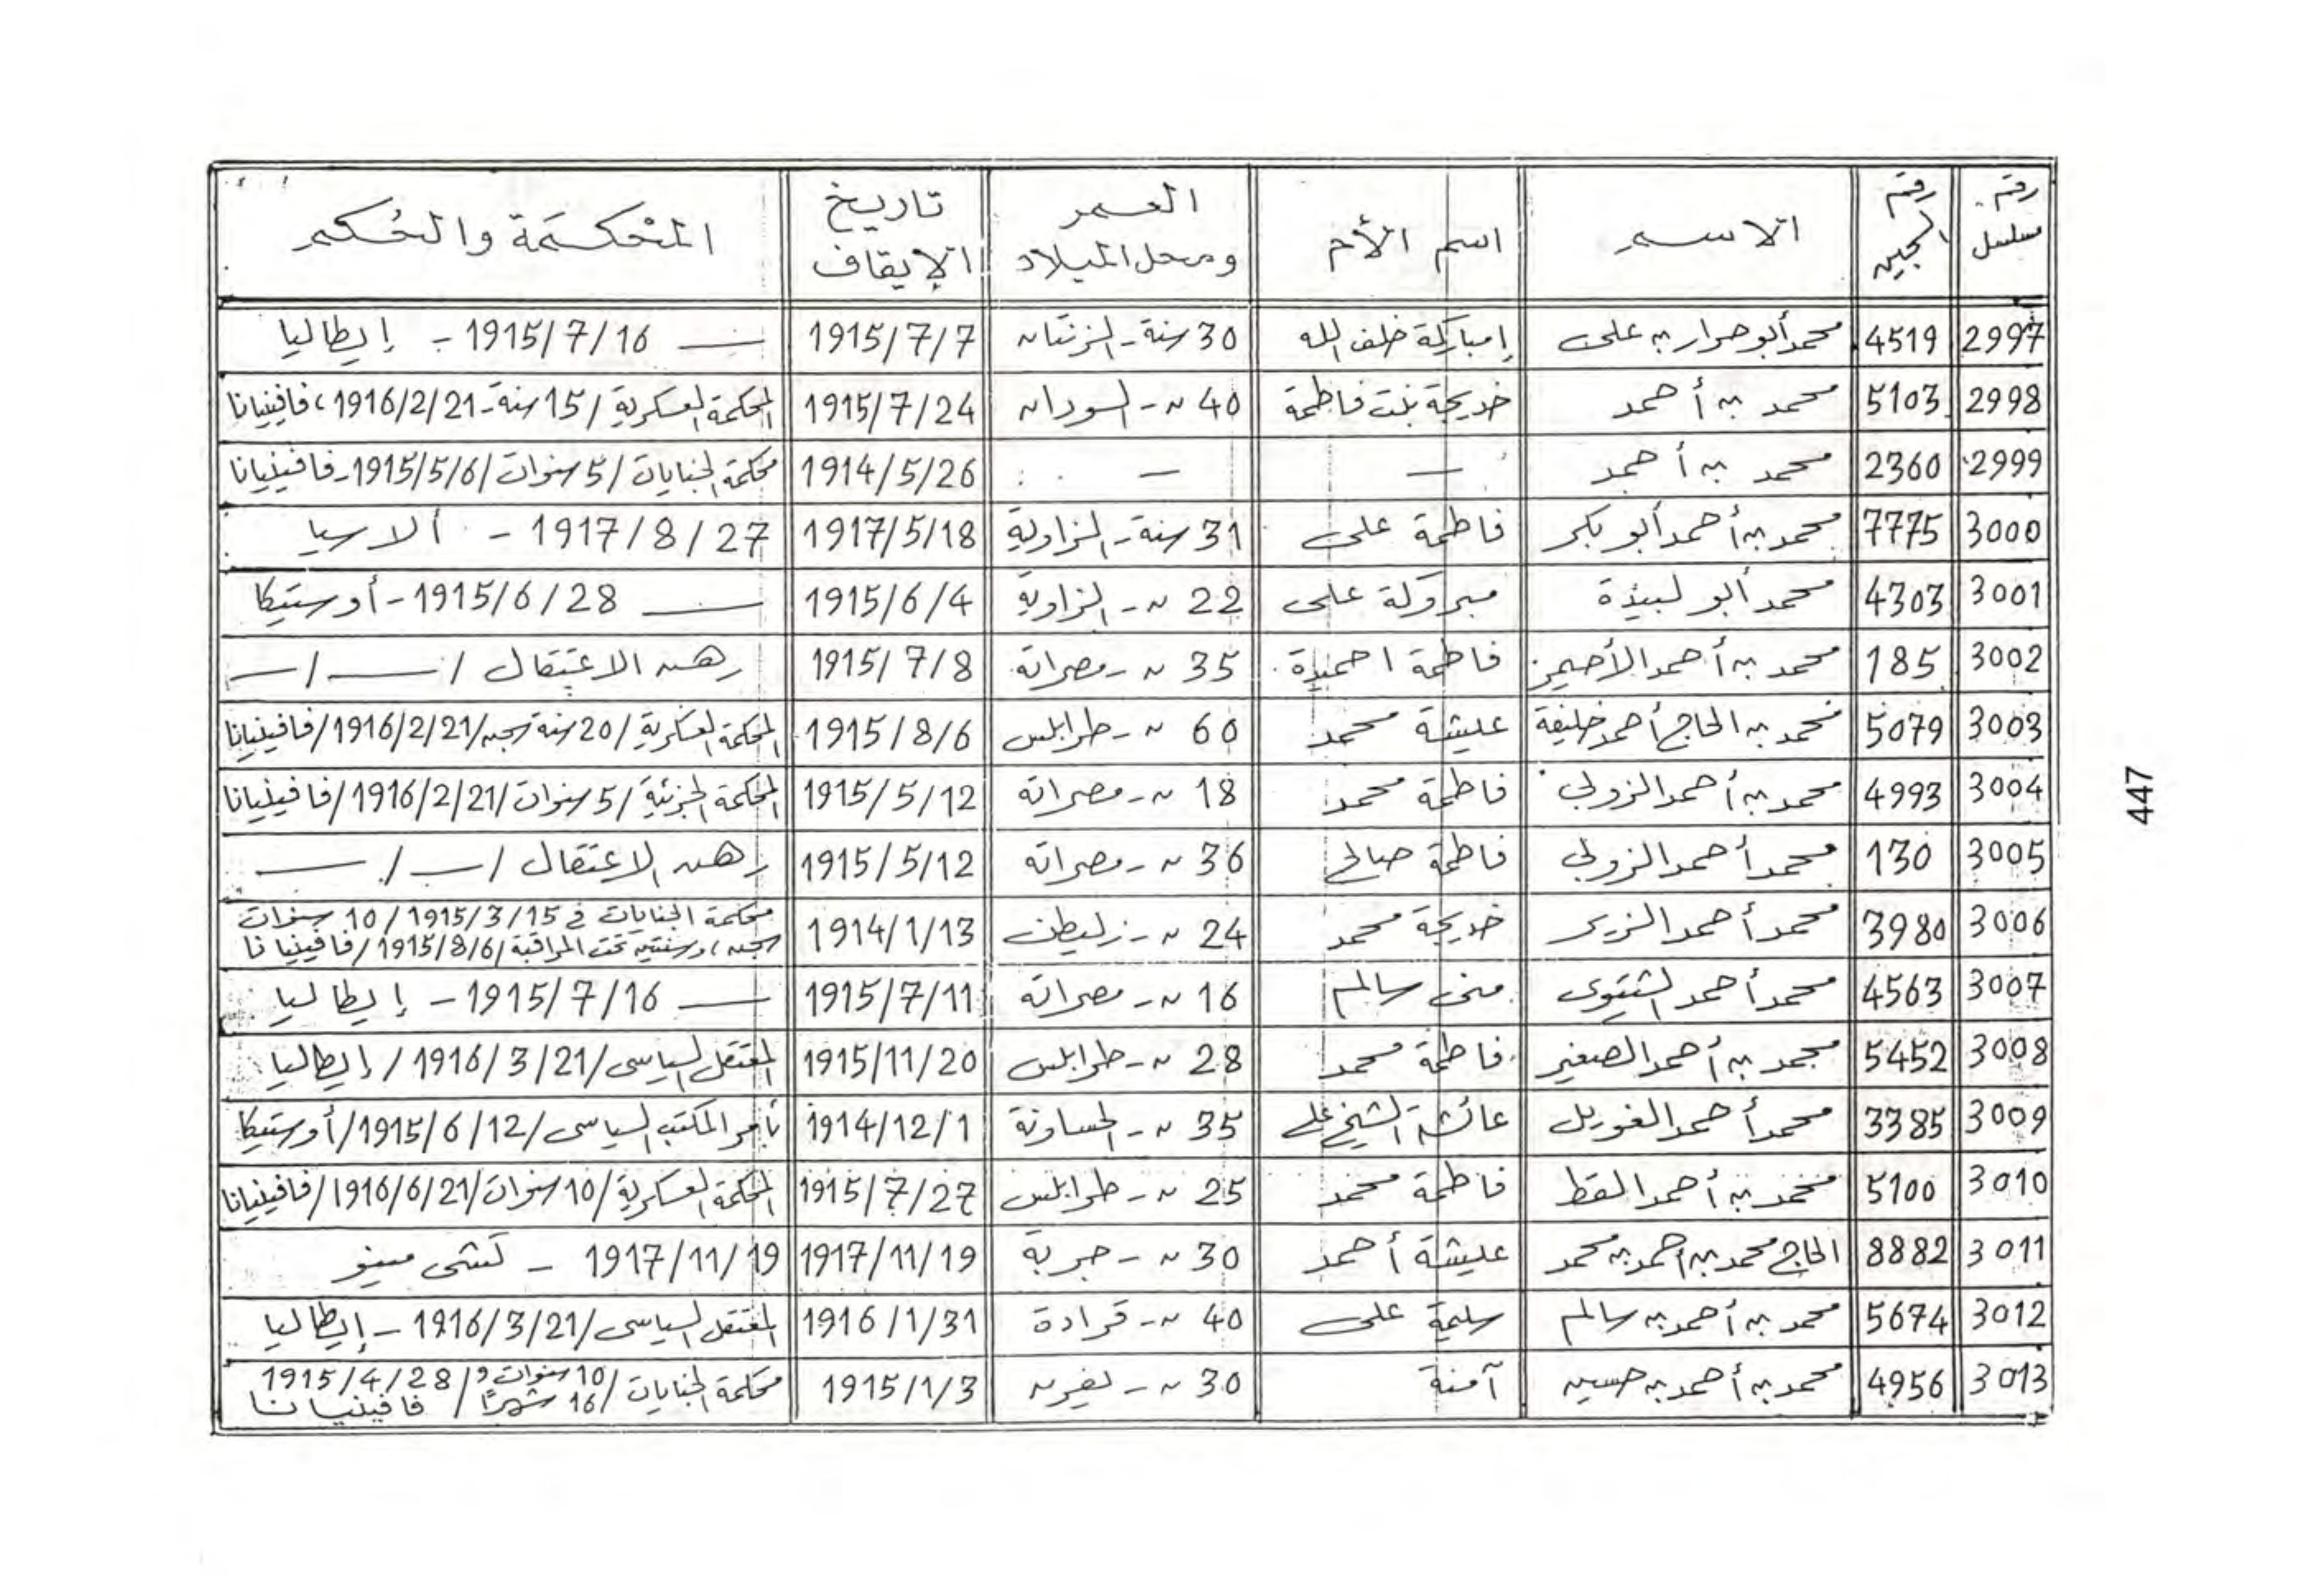 رقم مسلسل | رقم السجين | الاســم | اسم الأم | العمر ومحل الميلاد | تاريخ الإيقاف | المحكمة والحكم
2997 | 4519 | محمد أبو حرار بن على | إمباركة خلف الله | 30 سنة - الزنتان | 1915/7/7 | — 1915/7/16 - إيطاليا
2998 | 5103 | محمد بن أحمد | خديجة بنت فاطمة | 40 " - السودان | 1915/7/24 | المحكمة العسكرية / 15 سنة - 1916/2/21، فافينيانا
2999 | 2360 | محمد بن أحمد | — | — | 1914/5/26 | محكمة الجنايات / 5 سنوات / 1915/5/6 - فافينيانا
3000 | 7775 | محمد بن أحمد أبو بكر | فاطمة على | 31 سنة - الزاوية | 1917/5/18 | 1917/8/27 - ألا سيا
3001 | 4303 | محمد أبو لبيدة | مبروكة على | 22 " - الزاوية | 1915/6/4 | — 1915/6/28 - أوستيكا
3002 | 185 | محمد بن أحمد الأحيمر | فاطمة احميدة | 35 " - مصراتة | 1915/7/8 | رهن الاعتقال / — / —
3003 | 5079 | محمد بن الحاج أحمد خليفة | عليشة محمد | 60 " - طرابلس | 1915/8/6 | المحكمة العسكرية / 20 سنة سجن / 1916/2/21 / فافينيانا
3004 | 4993 | محمد بن أحمد الزولي | فاطمة محمد | 18 " - مصراتة | 1915/5/12 | المحكمة الجزئية / 5 سنوات / 1916/2/21 / فافينيانا
3005 | 130 | محمد أحمد الزولي | فاطمة صالح | 36 " - مصراتة | 1915/5/12 | رهن الاعتقال / — / —
3006 | 3980 | محمد أحمد الزير | خديجة محمد | 24 " - زليطن | 1914/1/13 | محكمة الجنايات في 1915/3/15 / 10 سنوات
سجن، وسنتين تحت المراقبة / 1915/8/6 / فافينيانا
3007 | 4563 | محمد أحمد الشتيوى | منى سالم | 16 " - مصراتة | 1915/7/11 | — 1915/7/16 - إيطاليا
3008 | 5452 | محمد بن أحمد الصغير | فاطمة محمد | 28 " - طرابلس | 1915/11/20 | المعتقل السياسى / 1916/3/21 / إيطاليا
3009 | 3385 | محمد أحمد الغويل | عائشة الشيخ على | 35 " - الحساونة | 1914/12/1 | بأمر المكتب السياسى / 1915/6/12 / أوستيكا
3010 | 5100 | محمد بن أحمد القط | فاطمة محمد | 25 " - طرابلس | 1915/7/27 | المحكمة العسكرية / 10 سنوات / 1916/6/21 / فافينيانا
3011 | 8882 | الحاج محمد بن أحمد بن محمد | عليشة أحمد | 30 " - جربة | 1917/11/19 | 1917/11/19 - كتشى مينو
3012 | 5674 | محمد بن أحمد بن سالم | سليمة على | 40 " - قرادة | 1916/1/31 | المعتقل السياسى / 1916/3/21 - إيطاليا
3013 | 4956 | محمد بن أحمد بن حسين | آمنة | 30 " - يفرن | 1915/1/3 | محكمة الجنايات / 10 سنوات و 16 شهرًا / 1915/4/28 فافينيانا
447